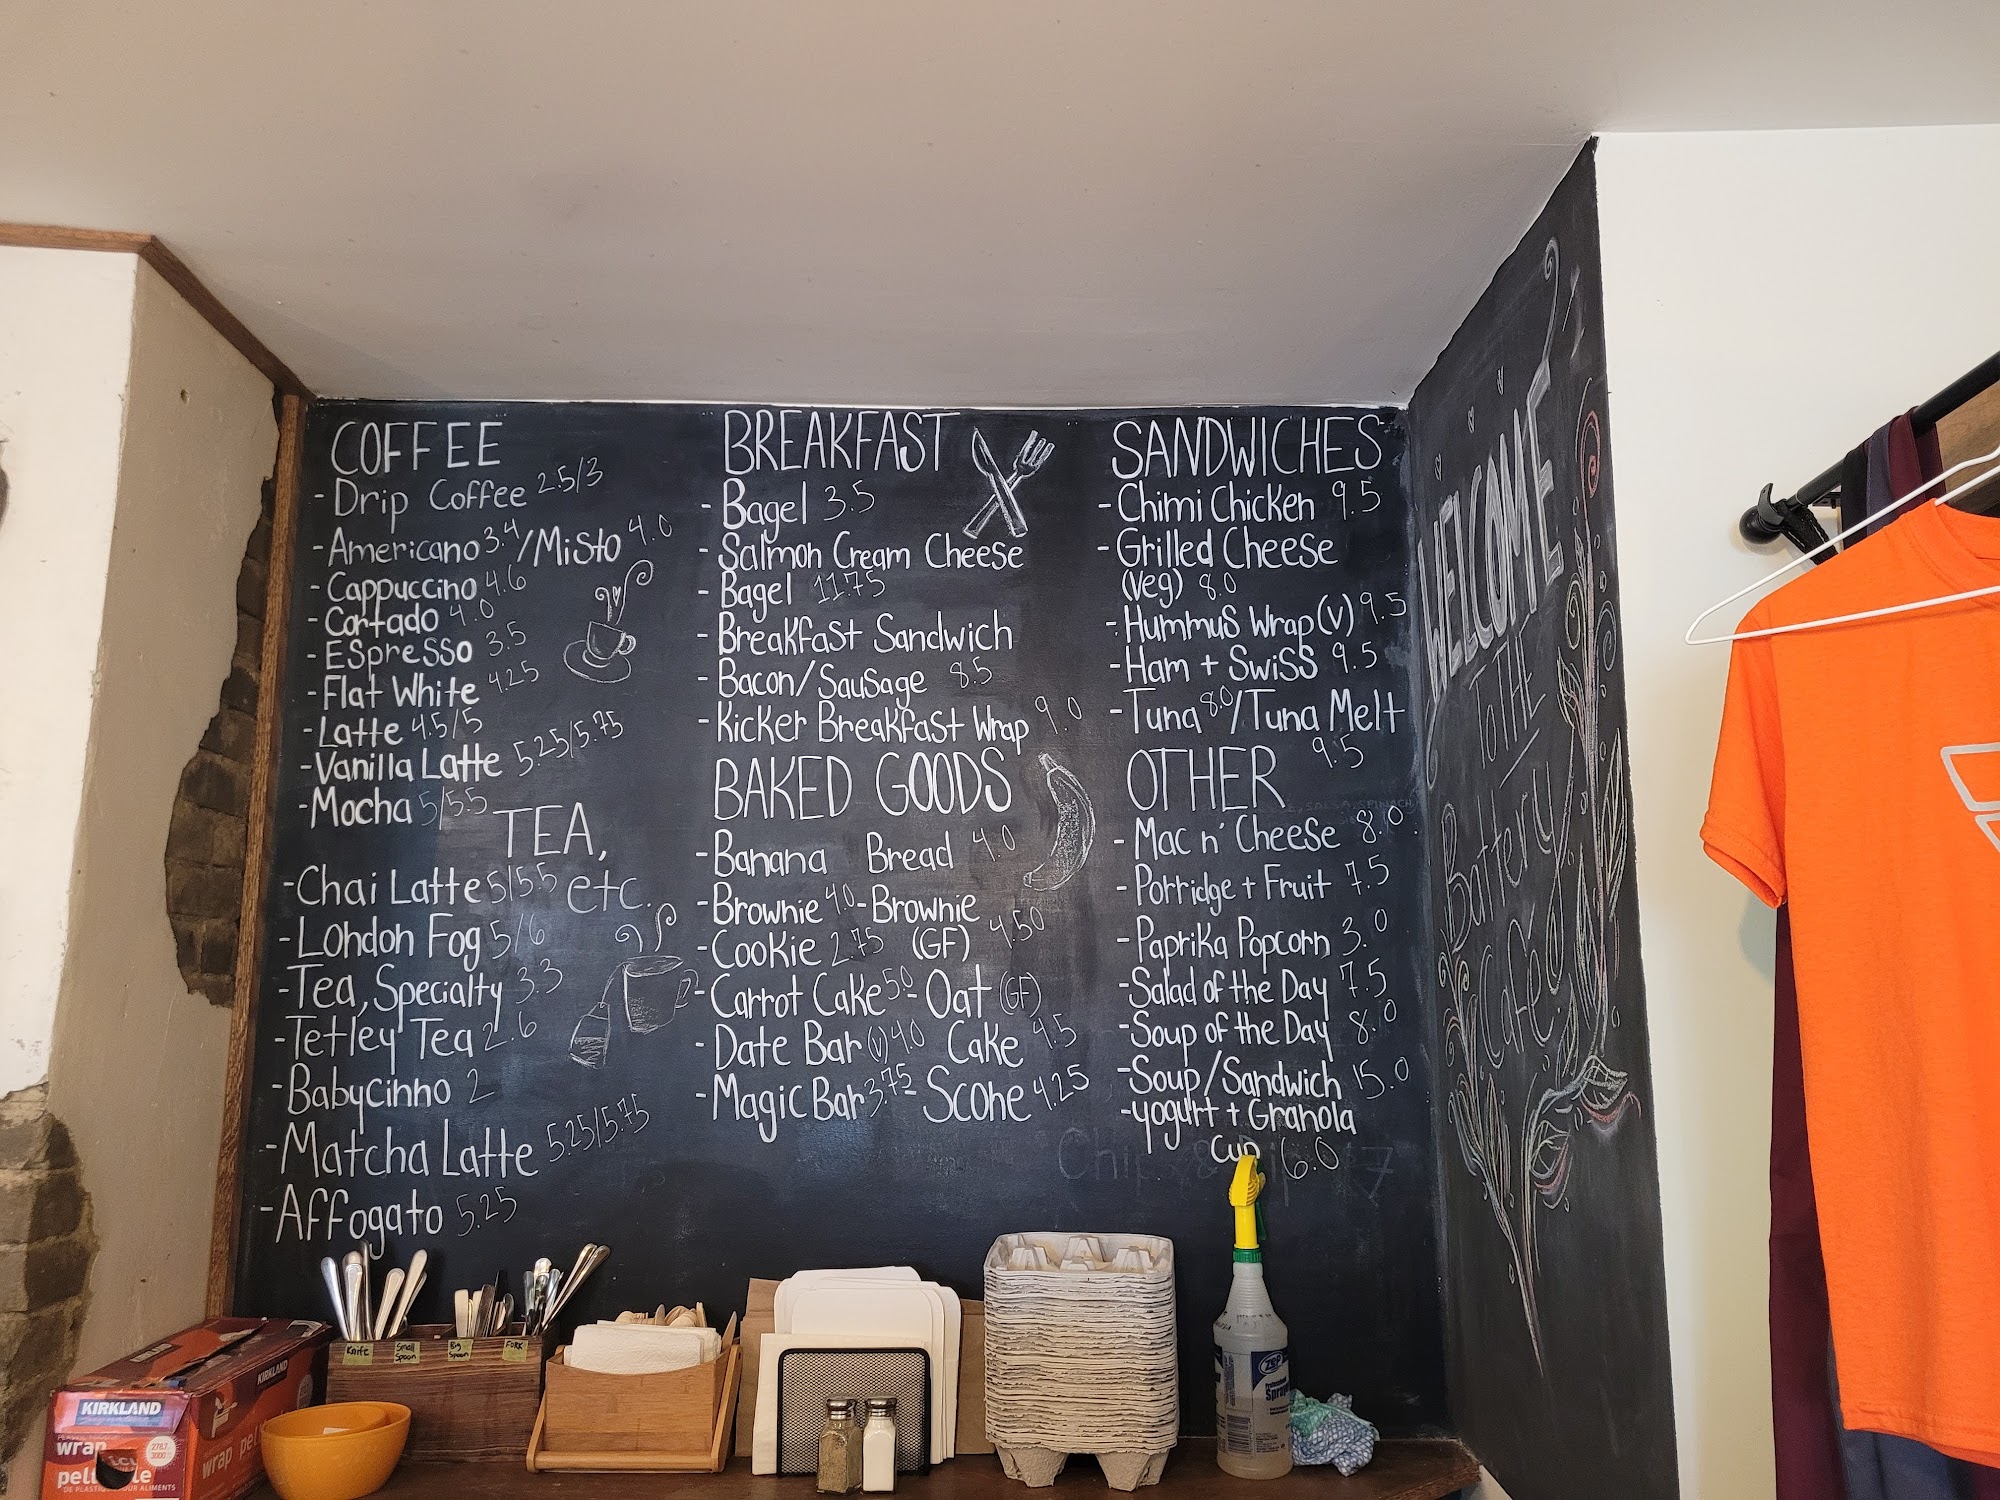 COFFEE
- Drip Coffee 2.5/3
- Americano 3.4 /Misto 4.0
- Cappuccino 4.6
- Cortado 4.0
- Espresso 3.5
- Flat White 4.25
- Latte 4.5/5
- Vanilla Latte 5.25/5.75
- Mocha 5/5.5
TEA,
etc.
- Chai Latte 5/5.5
- London Fog 5/6
- Tea, Specialty 3.3
- Tetley Tea 2.6
- Babycinno 2
- Matcha Latte 5.25/5.75
- Affogato 5.25
BREAKFAST
- Bagel 3.5
- Salmon Cream Cheese
- Bagel 11.75
- Breakfast Sandwich
- Bacon/Sausage 8.5
- Kicker Breakfast Wrap 9.0
BAKED GOODS
- Banana Bread 4.0
- Brownie 4.0 - Brownie
- Cookie 2.75 (GF) 4.50
- Carrot Cake 5.0 - Oat (GF)
- Date Bar (v) 4.0 Cake 4.5
- Magic Bar 3.75 - Scone 4.25
SANDWICHES
- Chimi Chicken 9.5
- Grilled Cheese
(Veg) 8.0
- Hummus Wrap (v) 9.5
- Ham + Swiss 9.5
- Tuna 8.0 /Tuna Melt
9.5
OTHER
- Mac n' Cheese 8.0
- Porridge + Fruit 7.5
- Paprika Popcorn 3.0
- Salad of the Day 7.5
- Soup of the Day 8.0
- Soup/Sandwich 15.0
- yogurt + Granola
cup 6.0
WELCOME
TO THE
Battery
Café
Knife
Small
Spoon
Big
Spoon
FORK
KIRKLAND
wrap
KIRKLAND
wrap
ZEP
Professional
Sprayer